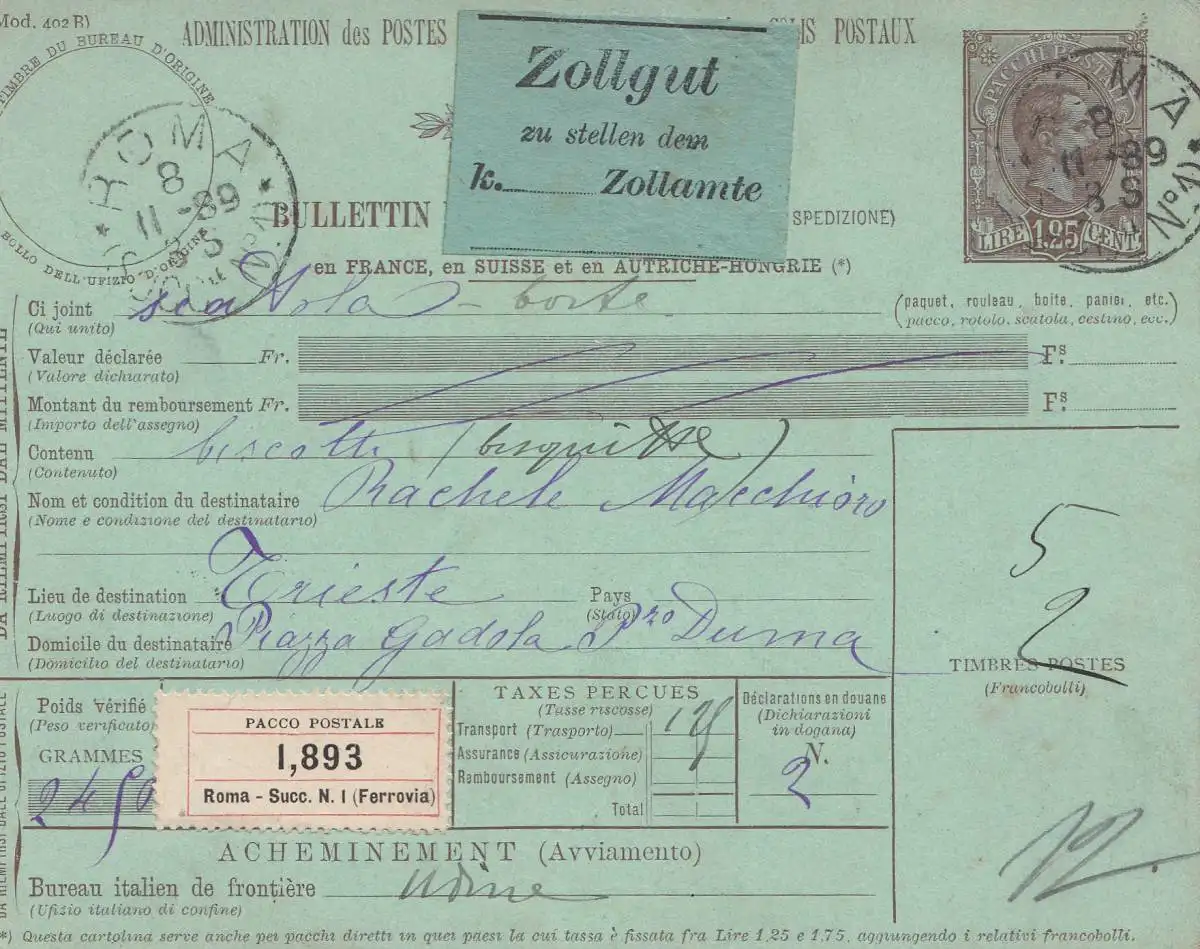 Mod. 402 B)
ADMINISTRATION des POSTES
COLIS POSTAUX
TIMBRE DU BUREAU D'ORIGINE
BOLLO DELL'UFIZIO D'ORIGINE
ROMA
8
11-89
8 S
Zollgut
zu stellen dem
k. Zollamte
PACCHI POSTALI
LIRE 1.25 CENT.
MA
8
11-89
8 S
BULLETTIN
SPEDIZIONE)
en FRANCE, en SUISSE et en AUTRICHE-HONGRIE (*)
Ci joint scatola - boite (paquet, rouleau, boite, panier, etc.
(Qui unito) pacco, rotolo, scatola, cestino, ecc.)
Valeur déclarée Fr. Fs.
(Valore dichiarato)
Montant du remboursement Fr. Fs.
(Importo dell'assegno)
Contenu biscotti
(Contenuto)
Nom et condition du destinataire Rachele Macchioro
(Nome e condizione del destinatario)
Lieu de destination Trieste Pays
(Luogo di destinazione) (Stato)
Domicile du destinataire Piazza Gadola Pzzo Duma
(Domicilio del destinatario)
5
2
TIMBRES POSTES
(Francobolli)
DA RIEMPIRSI DAL MITTENTE
Poids vérifié
(Peso verificato)
GRAMMES
2450
PACCO POSTALE
1,893
Roma - Succ. N. 1 (Ferrovia)
TAXES PERCUES
(Tasse riscosse)
Transport (Trasporto)
Assurance (Assicurazione)
Remboursement (Assegno)
Total
Déclarations en douane
(Dichiarazioni
in dogana)
N.
2
DA RIEMPIRSI DALL'UFIZIO POSTALE
ACHEMINEMENT (Avviamento)
Bureau italien de frontière Udine
(Ufizio italiano di confine)
*) Questa cartolina serve anche pei pacchi diretti in quei paesi la cui tassa è fissata fra Lire 1,25 e 1,75, aggiungendo i relativi francobolli.